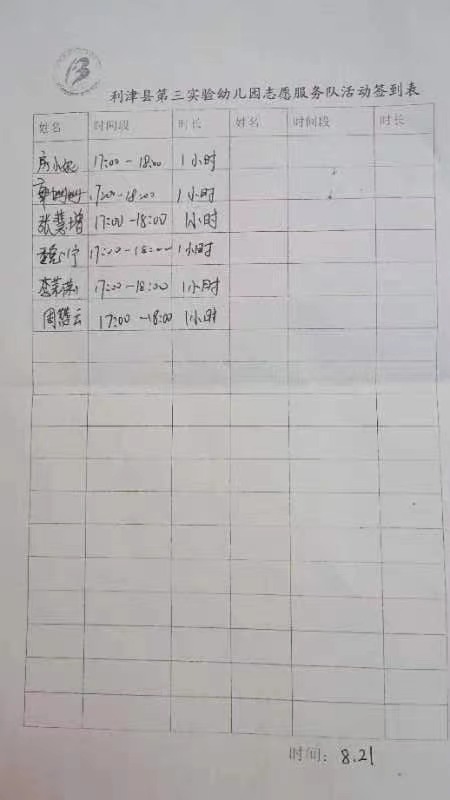 利津县第三实验幼儿园志愿服务队活动签到表
姓名 时间段 时长 姓名 时间段 时长
17:00-18:00 1小时
17:00-18:00 1小时
张慧增 17:00-18:00 1小时
17:00-18:00 1小时
17:00-18:00 1小时
周慧云 17:00-18:00 1小时
时间: 8.21